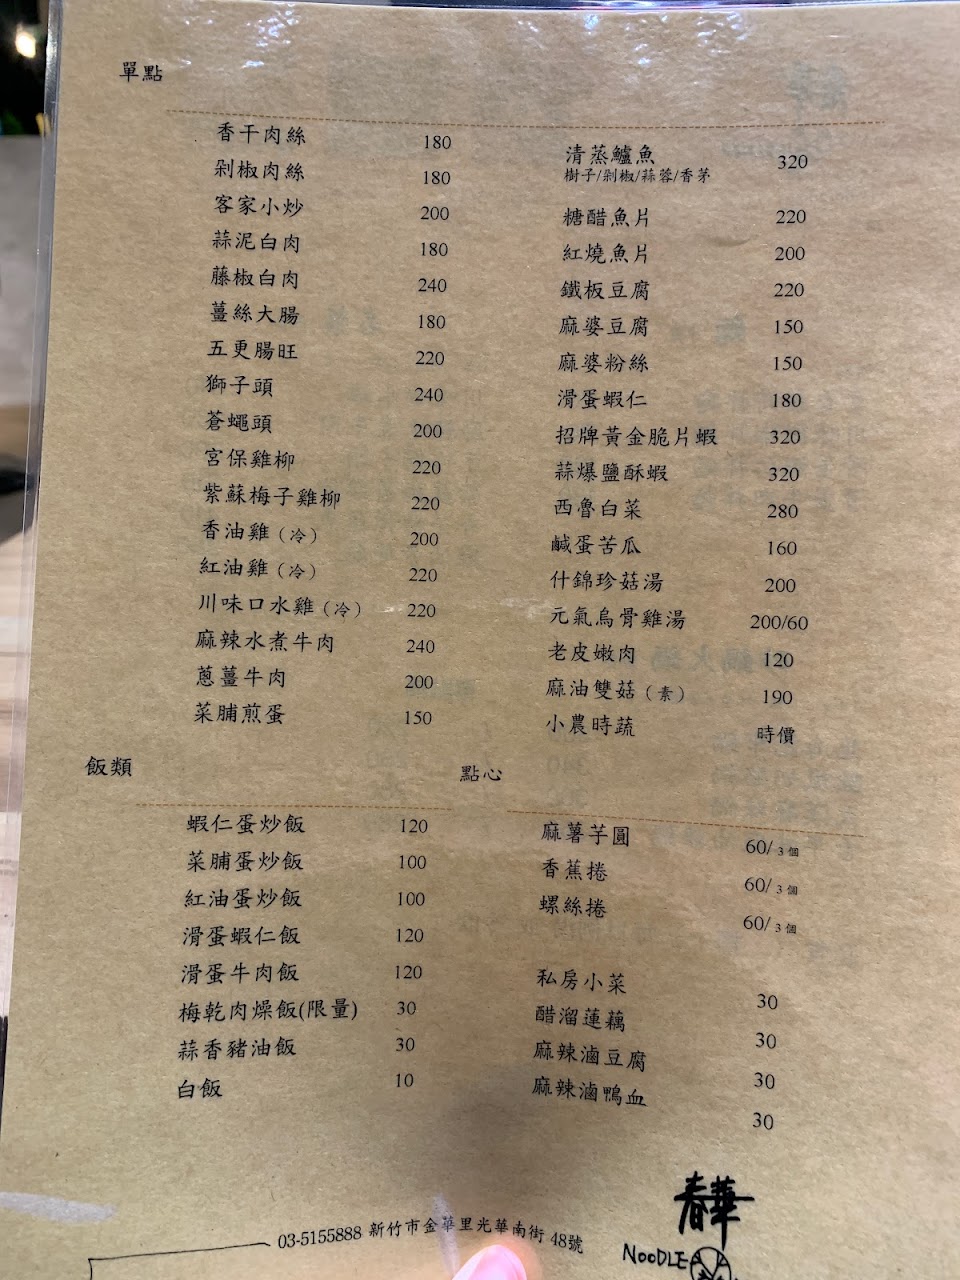 單點
香干肉絲 180
剁椒肉絲 180
客家小炒 200
蒜泥白肉 180
藤椒白肉 240
薑絲大腸 180
五更腸旺 220
獅子頭 240
蒼蠅頭 200
宮保雞柳 220
紫蘇梅子雞柳 220
香油雞（冷） 200
紅油雞（冷） 220
川味口水雞（冷） 220
麻辣水煮牛肉 240
蔥薑牛肉 200
菜脯煎蛋 150
清蒸鱸魚 320
樹子/剁椒/蒜蓉/香茅
糖醋魚片 220
紅燒魚片 200
鐵板豆腐 220
麻婆豆腐 150
麻婆粉絲 150
滑蛋蝦仁 180
招牌黃金脆片蝦 320
蒜爆鹽酥蝦 320
西魯白菜 280
鹹蛋苦瓜 160
什錦珍菇湯 200
元氣烏骨雞湯 200/60
老皮嫩肉 120
麻油雙菇（素） 190
小農時蔬 時價
飯類
蝦仁蛋炒飯 120
菜脯蛋炒飯 100
紅油蛋炒飯 100
滑蛋蝦仁飯 120
滑蛋牛肉飯 120
梅乾肉燥飯(限量) 30
蒜香豬油飯 30
白飯 10
點心
麻薯芋圓 60/3個
香蕉捲 60/3個
螺絲捲 60/3個
私房小菜 30
醋溜蓮藕 30
麻辣滷豆腐 30
麻辣滷鴨血 30
春華
NOODLE
03-5155888 新竹市金華里光華南街 48號